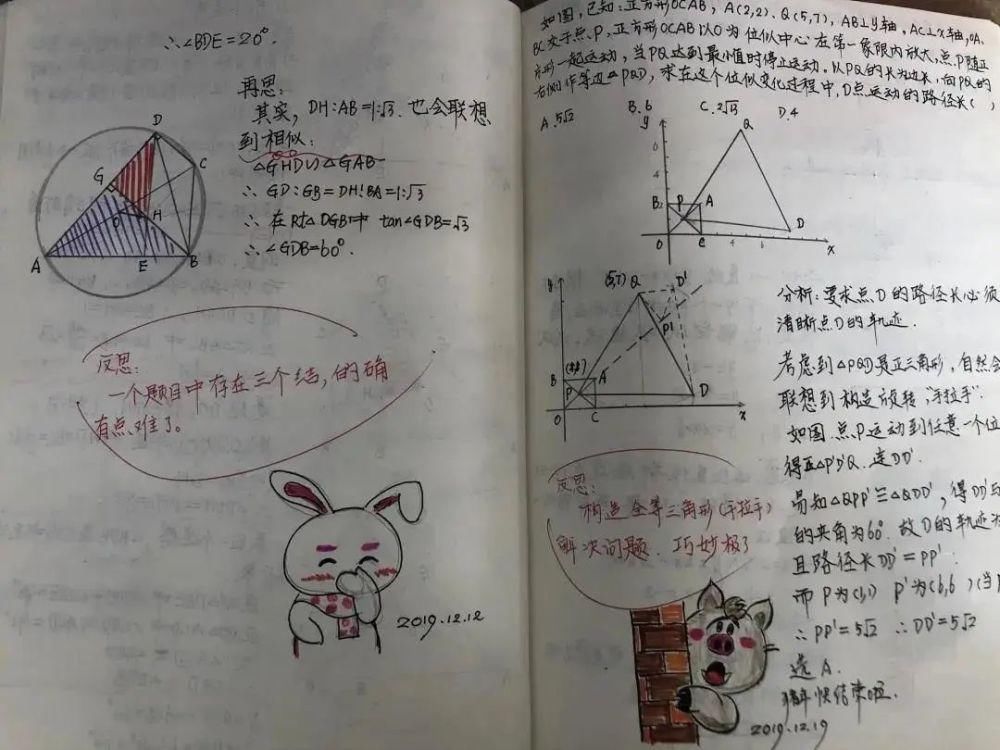 ∴∠BDE=20°.
再思:
其实, DH:AB=1:√3. 也会联想
到相似:
△GHD∽△GAB
∴ GD:GB=DH:BA=1:√3
∴ 在Rt△DGB中 tan∠GDB=√3
∴ ∠GDB=60°.
D
C
G
H
A
E
B
反思:
一个题目中存在三个结, 的确
有点难了。
2019.12.12
如图, 已知: 正方形OCAB, A(2,2), Q(5,7), AB⊥y轴, AC⊥x轴, OA,
BC交于点P, 正方形OCAB以O为位似中心在第一象限内放大, 点P随正
方形一起运动, 当PQ达到最小值时停止运动. 以PQ的长为边长, 向PQ的
右侧作等边△PQD, 求在这个位似变化过程中, D点运动的路径长( )
A.5√2
B.6
C.2√13
D.4
y
Q
6
4
B2
P
A
D
O
C
4
6
x
y
(5,7)
Q
D'
P'
B
A
P
D
O
C
x
分析: 要求点D的路径长必须
清晰点D的轨迹.
考虑到△PQD是正三角形, 自然会
联想到构造旋转,"手拉手".
如图.点P运动到任意一个位
得正△P'D'Q. 连DD'.
易知△QPP'≌△QDD', 得DD'与
的夹角为60°. 故D的轨迹为
且路径长DD'=PP'.
而P为(1,1) P'为(6,6)(当P
∴PP'=5√2 ∴DD'=5√2
选A.
猪年快结束啦.
反思:
构造全等三角形(手拉手)
解决问题. 巧妙极了
2019.12.19